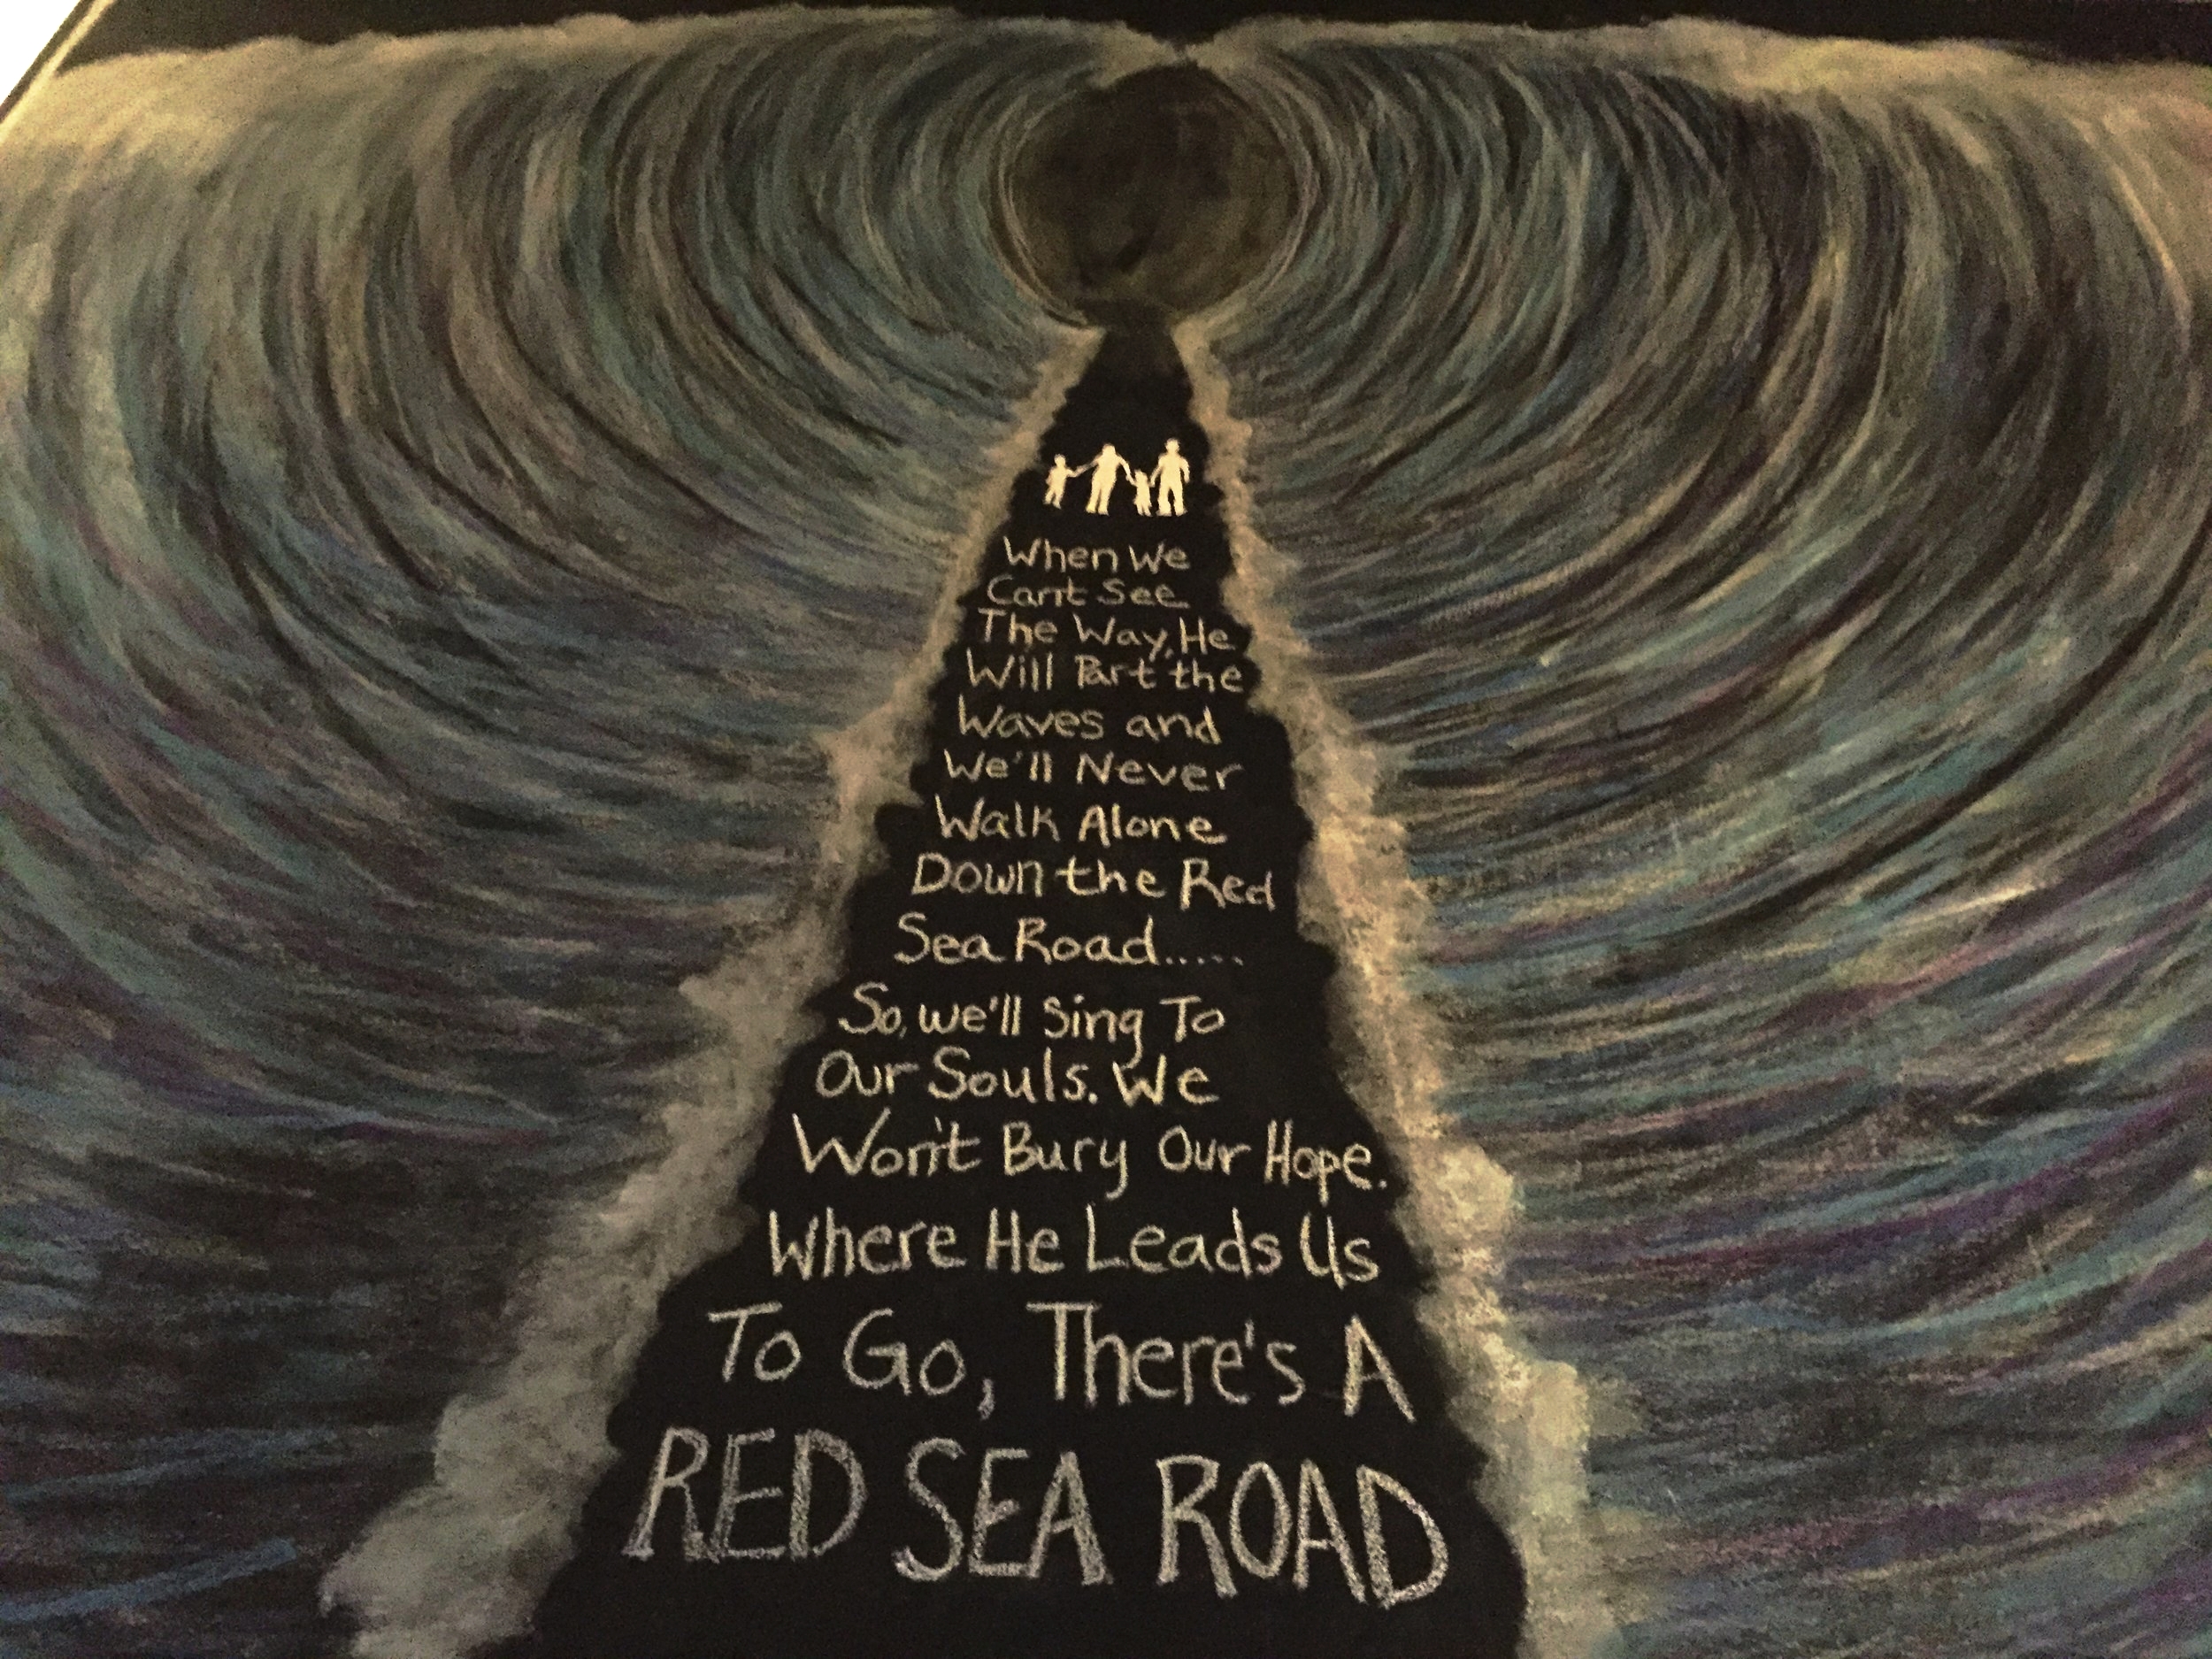 When We
Can't See
The Way, He
Will Part the
Waves and
We'll Never
Walk Alone
Down the Red
Sea Road.....
So, we'll Sing To
Our Souls. We
Won't Bury Our Hope.
Where He Leads Us
To Go, There's A
RED SEA ROAD